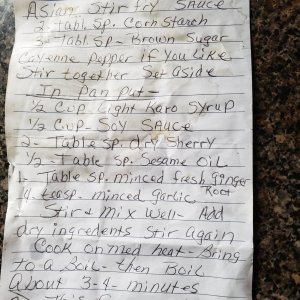 Asian Stir fry SAuce
2-tabl. Sp. Corn Starch
3-Tabl. Sp- Brown Sugar
Cayenne Pepper if You Like
Stir together Set aside
In Pan Put-
1/2 Cup Light Karo Syrup
1/2 Cup-Soy SAuce
2-Table sp. dry Sherry
1/2-Table sp. Sesame Oil
Table sp. minced fresh Ginger
Root
teasp. minced garlic
Stir & Mix Well- Add
dry ingredents Stir Again
Cook on med heat- Bring
to a Boil- then Boil
About 3-4-minutes
This